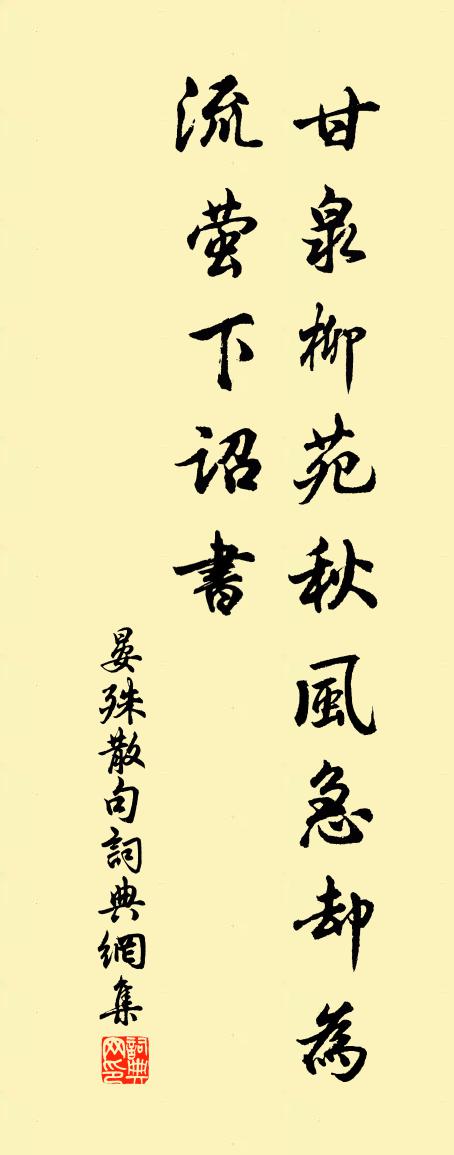 甘泉柳苑秋風急却為
流萤下詔書
晏殊散句詞典網集
詞典网印